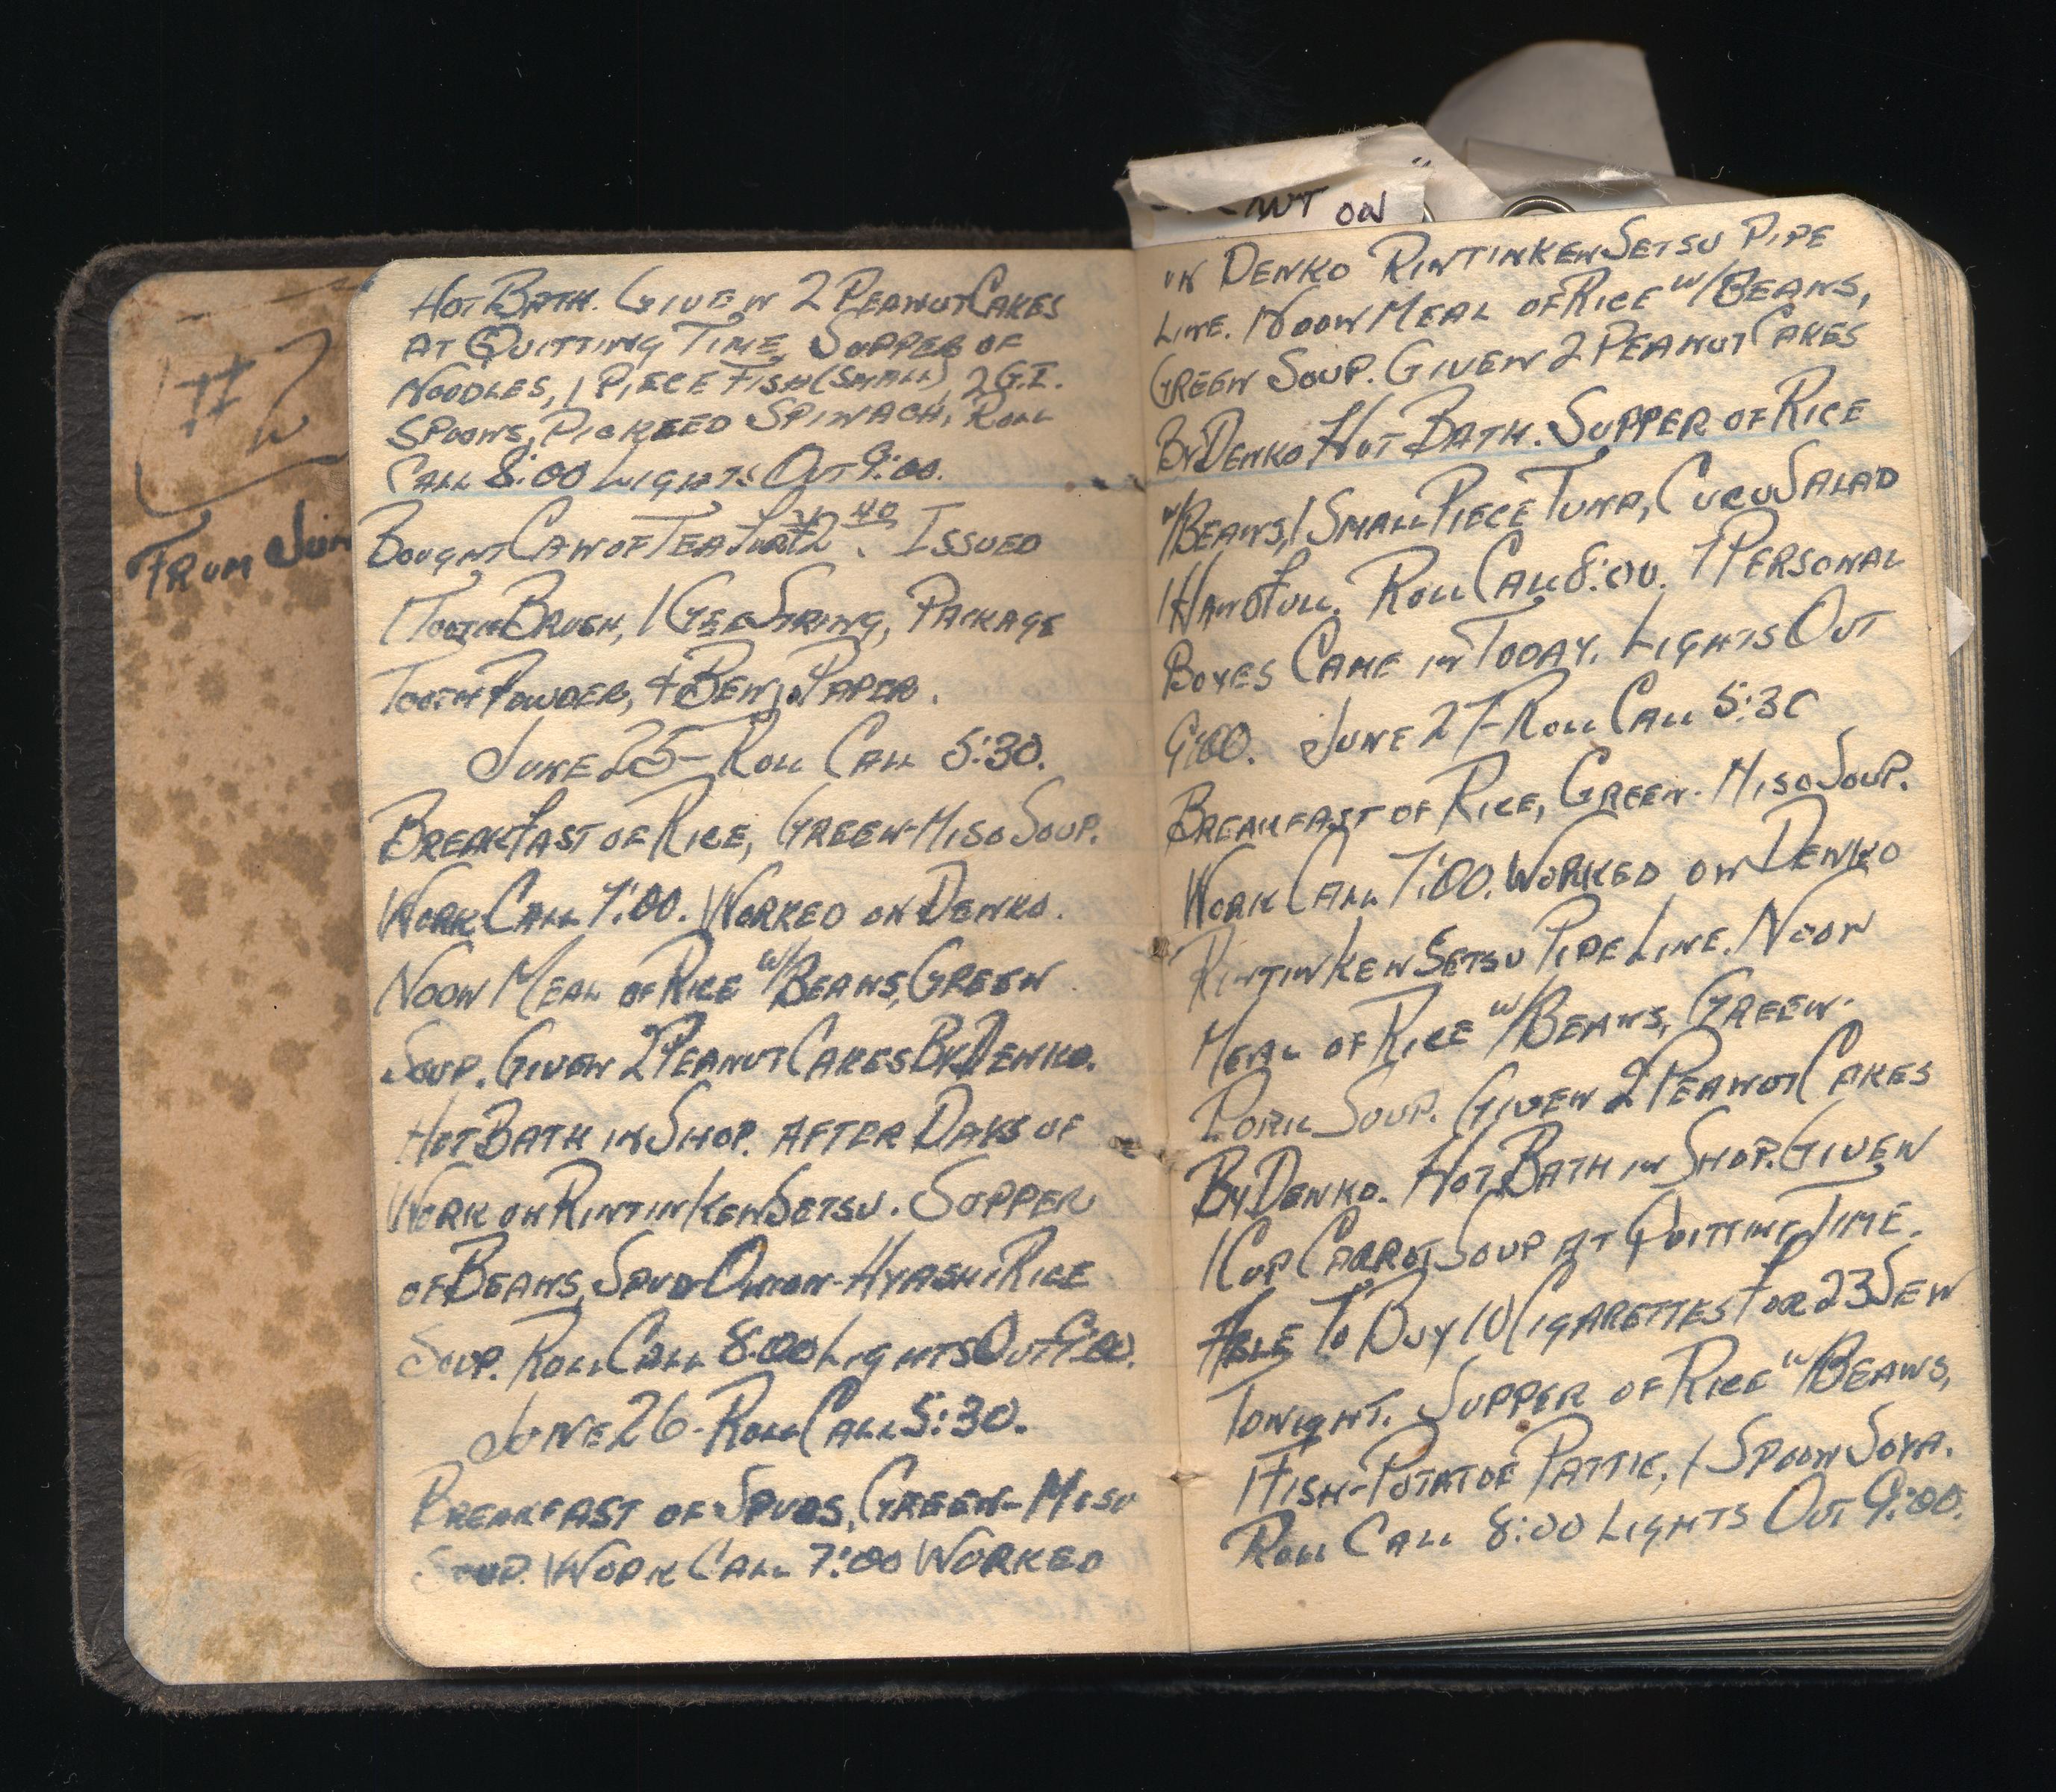 #2
FROM JUN
HOT BATH. GIVEN 2 PEANUT CAKES
AT QUITTING TIME. SUPPER OF
NOODLES, 1 PIECE FISH (SMALL), 2 G.I.
SPOONS, PICKEED SPINACH, ROLL
CALL 8:00 LIGHTS OUT 9:00.
BOUGHT CAN OF TEA FOR ¥2 40. ISSUED
1 TOOTH BRUSH, 1 GEE STRING, PACKAGE
TOOTH POWDER, + BENJO PAPER.
JUNE 25 - ROLL CALL 5:30.
BREAKFAST OF RICE, GREEN-MISO SOUP.
WORK CALL 7:00. WORKED ON DENKO.
NOON MEAL OF RICE W/BEANS, GREEN
SOUP. GIVEN 2 PEANUT CAKES BY DENKO.
HOT BATH IN SHOP. AFTER DAYS OF
WORK ON RINTINKENSETSU. SUPPER
OF BEANS, SPUD-ONION-HYASHI RICE
SOUP. ROLL CALL 8:00 LIGHTS OUT 9:00.
JUNE 26 - ROLL CALL 5:30.
BREAKFAST OF SPUDS, GREEN-MISO
SOUP. WORK CALL 7:00 WORKED
ON
IN DENKO RINTINKENSETSU PIPE
LINE. NOON MEAL OF RICE W/BEANS,
GREEN SOUP. GIVEN 2 PEANUT CAKES
BY DENKO HOT BATH. SUPPER OF RICE
W/BEANS, 1 SMALL PIECE TUNA, CUCU SALAD
1 HANDFULL. ROLL CALL 8:00. 7 PERSONAL
BOXES CAME IN TODAY. LIGHTS OUT
9:00. JUNE 27 - ROLL CALL 5:30
BREAKFAST OF RICE, GREEN-MISO SOUP.
WORK CALL 7:00. WORKED ON DENKO
RINTINKENSETSU PIPE LINE. NOON
MEAL OF RICE W/BEANS, GREEN-
PORK SOUP. GIVEN 2 PEANUT CAKES
BY DENKO. HOT BATH IN SHOP. GIVEN
1 CUP CARROT SOUP AT QUITTING TIME.
ABLE TO BUY 10 CIGARETTES FOR 23 SEN
TONIGHT. SUPPER OF RICE W/BEANS,
1 FISH-POTATOE PATTIE, 1 SPOON SOYA.
ROLL CALL 8:00 LIGHTS OUT 9:00.